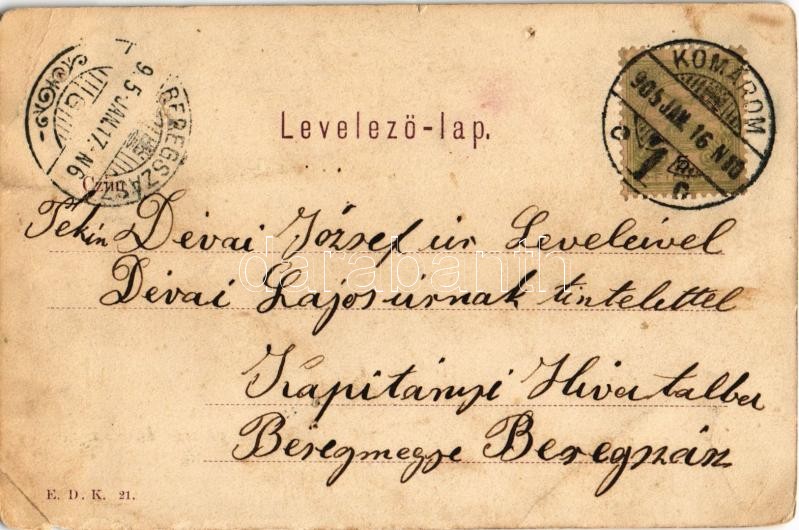 BEREGSZÁSZ
9.5 JAN. 17. N6
KOMÁROM
905 JAN. 16 N10
C 1 C
Levelező-lap.
Czím
Tekin Dévai József úr Leveleivel
Dévai Lajos úrnak tintelettel
Kapitányi Hivatalba
Beregmegye Beregszász
E. D. K. 21.
darabanth